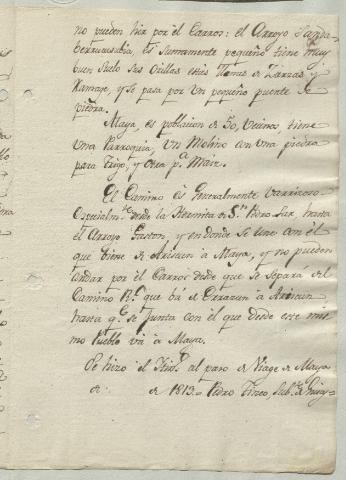 no pueden hir por él Carros: el Arroyo
berruzubia, es sumamente pequeño tiene muy
buen suelo sus orillas estan llenas de Zarzas y
Ramage, y se pasa por un pequeño puente de
piedra.
Maya, es poblacion de 50, vecinos tiene
una Parroquia, un Molino con una piedra
para Trigo, y otra pª Maiz.
El Camino és Generalmente varrinoso
Especialmte desde la Hermita de Sn Pedro Sur, hasta
él Arroyo Gaston, y en donde se une con él
que viene de Ariscun à Maya, y no pueden
andar por él Carros desde que se separa del
Camino Rl que bá de Errazun à Ariscun
hasta qe se junta con él que desde este mis
mo Pueblo vá à Maya.
Se hizo el al paso de Viage de Maya
de de 1813.= Pedro Tineo, Subte